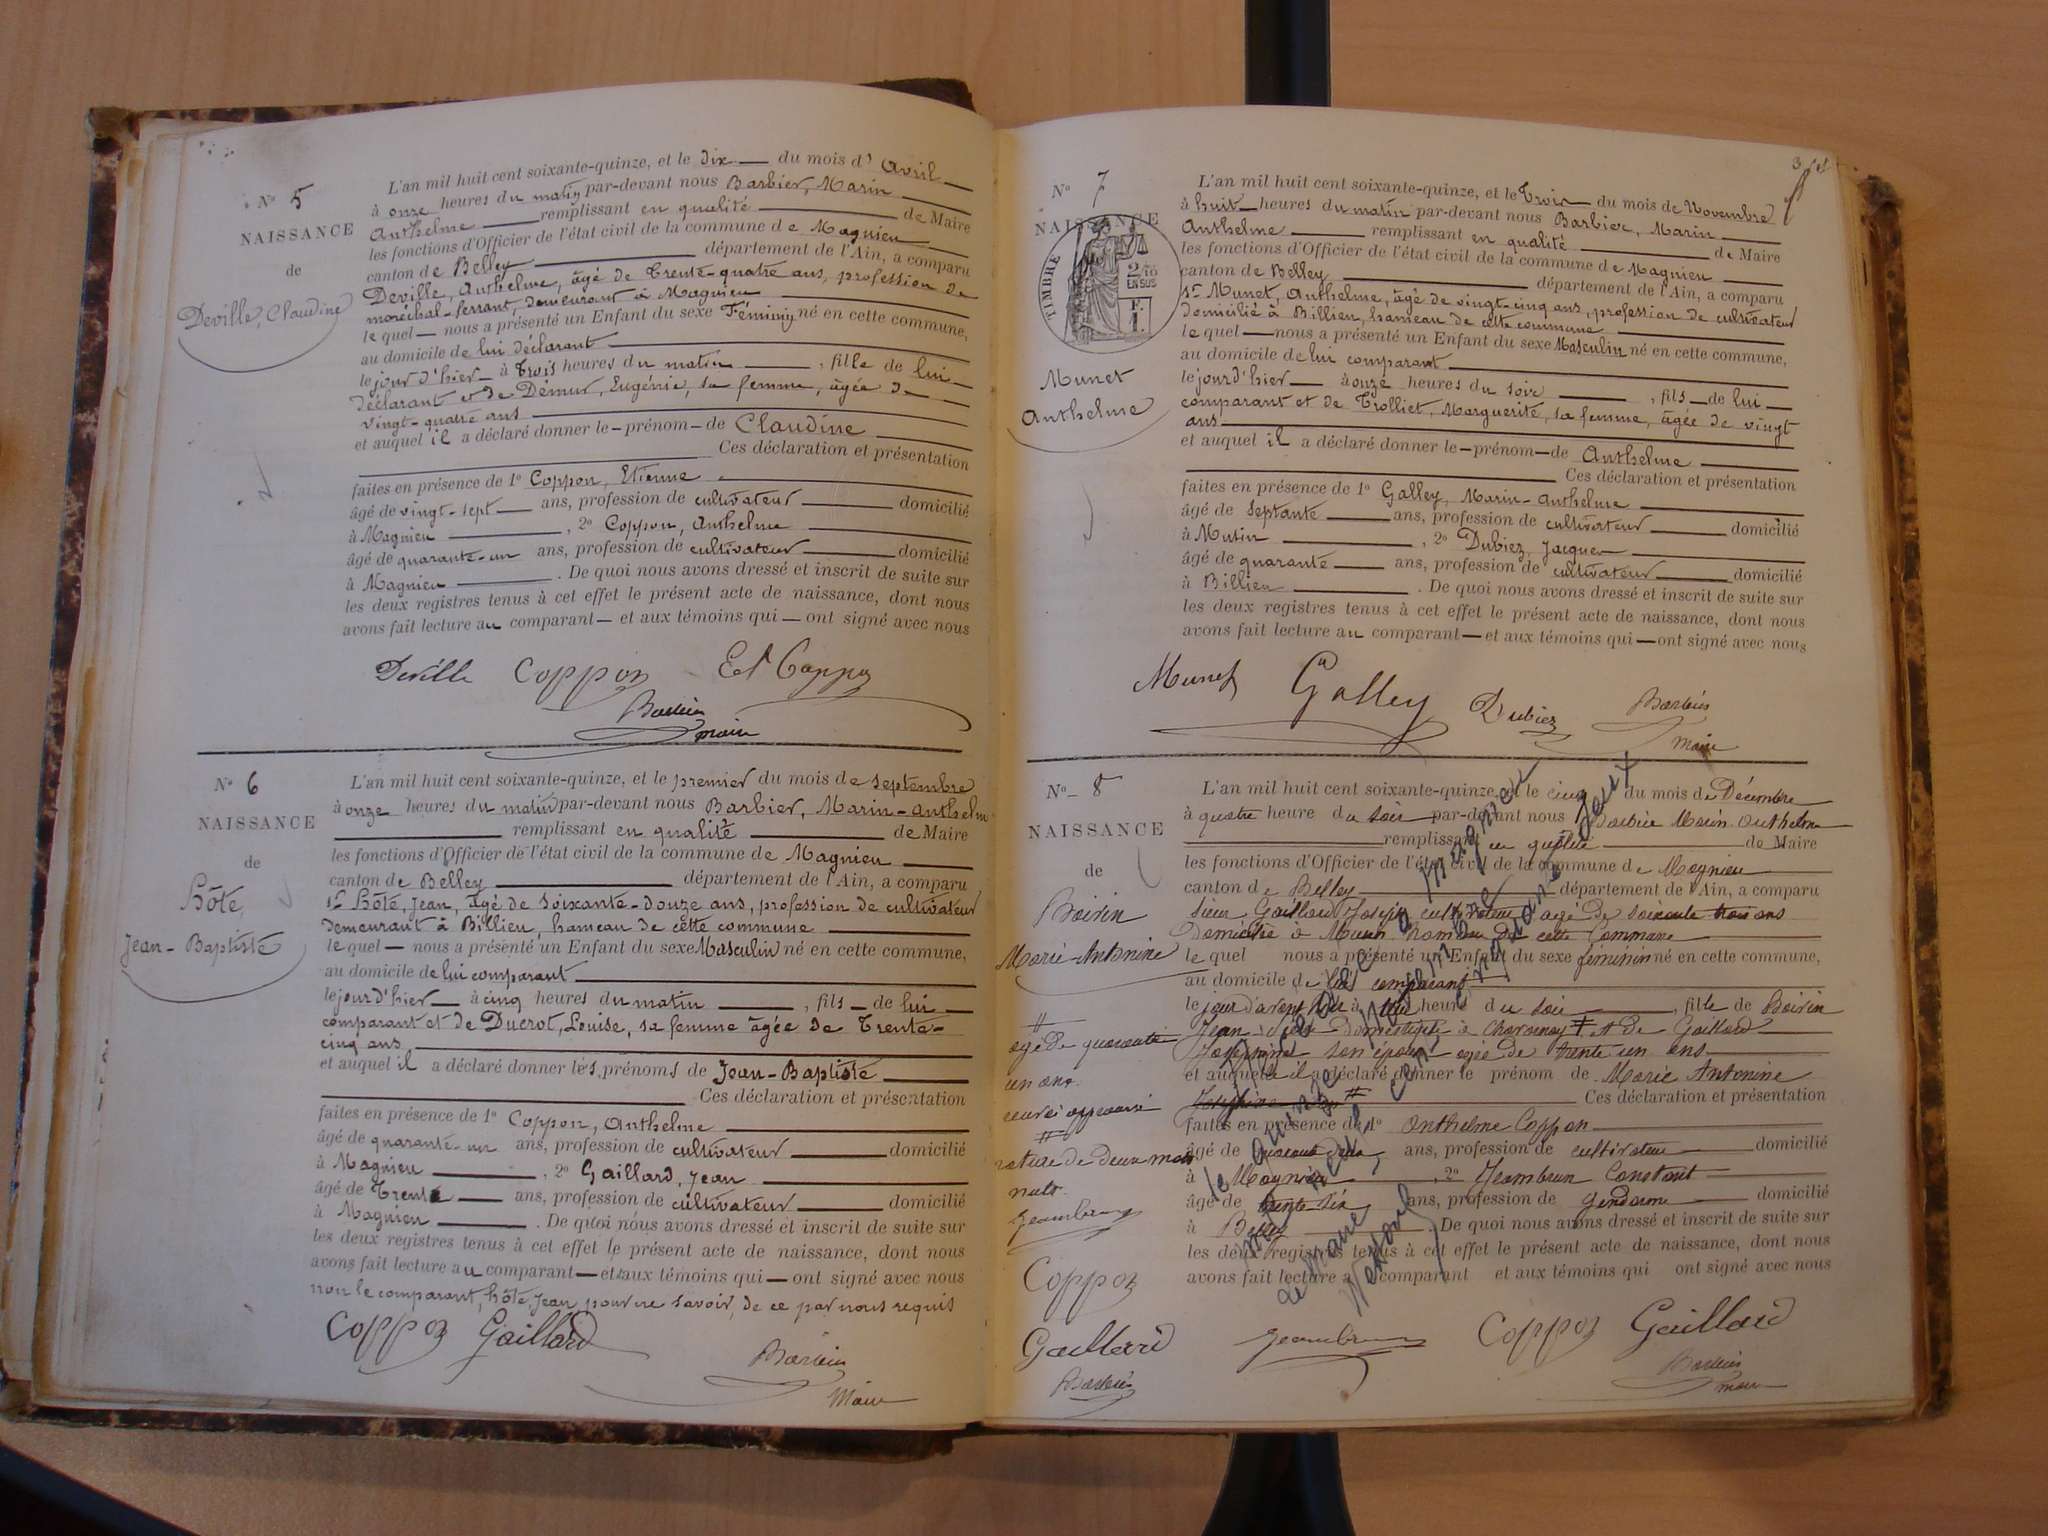 N° 5
NAISSANCE
de
Deville, Claudine
L'an mil huit cent soixante-quinze, et le dix du mois d' avril
à onze heures du matin par-devant nous Barbier, Marin
Anthelme remplissant en qualité de Maire
les fonctions d'Officier de l'état civil de la commune de Magnieu
canton de Belley département de l'Ain, a comparu
Deville, Anthelme, âgé de Trente-quatre ans, profession de
maréchal-ferrant, demeurant à Magnieu
le quel nous a présenté un Enfant du sexe Féminin né en cette commune,
au domicile de lui déclarant
le jour d'hier à Trois heures du matin , fille de lui
déclarant et de Démur, Eugénie, sa femme, âgée de
vingt-quatre ans
et auquel il a déclaré donner le prénom de Claudine
Ces déclaration et présentation
faites en présence de 1° Coppon, Etienne
âgé de vingt-sept ans, profession de cultivateur domicilié
à Magnieu , 2° Coppon, Anthelme
âgé de quarante-un ans, profession de cultivateur domicilié
à Magnieu . De quoi nous avons dressé et inscrit de suite sur
les deux registres tenus à cet effet le présent acte de naissance, dont nous
avons fait lecture au comparant et aux témoins qui ont signé avec nous
Deville Coppon Et Coppon
Barbier
maire
N° 6
NAISSANCE
de
Hôte,
Jean-Baptiste
L'an mil huit cent soixante-quinze, et le premier du mois de septembre
à onze heures du matin par-devant nous Barbier, Marin-Anthelme
remplissant en qualité de Maire
les fonctions d'Officier de l'état civil de la commune de Magnieu
canton de Belley département de l'Ain, a comparu
Sr Hôte, Jean, âgé de soixante-douze ans, profession de cultivateur
demeurant à Billieu, hameau de cette commune
le quel nous a présenté un Enfant du sexe Masculin né en cette commune,
au domicile de lui comparant
le jour d'hier à cinq heures du matin , fils de lui
comparant et de Ducrot, Louise, sa femme âgée de Trente-
cinq ans
et auquel il a déclaré donner les prénoms de Jean-Baptiste
Ces déclaration et présentation
faites en présence de 1° Coppon, Anthelme
âgé de quarante-un ans, profession de cultivateur domicilié
à Magnieu , 2° Gaillard, Jean
âgé de Trente ans, profession de cultivateur domicilié
à Magnieu . De quoi nous avons dressé et inscrit de suite sur
les deux registres tenus à cet effet le présent acte de naissance, dont nous
avons fait lecture au comparant et aux témoins qui ont signé avec nous
non le comparant, hôte, Jean, pour ne savoir, de ce par nous requis
Coppon Gaillard
Barbier
Maire
3
N° 7
NAISSANCE
TIMBRE
2/10
EN SUS
F.
1.
Munet
Anthelme
L'an mil huit cent soixante-quinze, et le Trois du mois de Novembre
à huit heures du matin par-devant nous Barbier, Marin
Anthelme remplissant en qualité de Maire
les fonctions d'Officier de l'état civil de la commune de Magnieu
canton de Belley département de l'Ain, a comparu
Sr Munet, Anthelme, âgé de vingt-cinq ans, profession de cultivateur
domicilié à Billieu, hameau de cette commune
le quel nous a présenté un Enfant du sexe Masculin né en cette commune,
au domicile de lui comparant
le jour d'hier à onze heures du soir , fils de lui
comparant et de Trolliet, Marguerite, sa femme, âgée de vingt
ans
et auquel il a déclaré donner le prénom de Anthelme
Ces déclaration et présentation
faites en présence de 1° Galley, Marin-Anthelme
âgé de septante ans, profession de cultivateur domicilié
à Mutin , 2° Dubiez, Jacques
âgé de quarante ans, profession de cultivateur domicilié
à Billieu . De quoi nous avons dressé et inscrit de suite sur
les deux registres tenus à cet effet le présent acte de naissance, dont nous
avons fait lecture au comparant et aux témoins qui ont signé avec nous
Munet Galley Dubiez Barbier
Maire
N° 8
NAISSANCE
de
Boirin
Marie-Antonine
#
agé de quarante
un ans.
#
rature de deux mots
nuls.
Jeambrun
Coppon
Gaillard
Barbier
L'an mil huit cent soixante-quinze, et le cinq du mois de Décembre
à quatre heure du soir par-devant nous Barbier Marin Anthelme
remplissant en qualité de Maire
les fonctions d'Officier de l'état civil de la commune de Magnieu
canton de Belley département de l'Ain, a comparu
sieur Gaillard Joseph cultivateur agé de soixante trois ans
domicilié à hameau de cette Commune
le quel nous a présenté un Enfant du sexe féminin né en cette commune,
au domicile de lui comparant
le jour d'avant hier à heure du soir , fille de Boirin
Jean domestique à # et de Gaillard
Josephine son épouse agée de trente un ans
et auquel il a déclaré donner le prénom de Marie Antonine
Josephine # Ces déclaration et présentation
faites en présence de 1° Anthelme Coppon
âgé de quarante ans, profession de cultivateur domicilié
à Magnieu , 2° Jeambrun Constant
âgé de trente six ans, profession de gendarme domicilié
à Belley . De quoi nous avons dressé et inscrit de suite sur
les deux registres tenus à cet effet le présent acte de naissance, dont nous
avons fait lecture au comparant et aux témoins qui ont signé avec nous
Jeambrun Coppon Gaillard
Barbier
maire
Décédée à Magnieu
le quinze Novembre
mil neuf cent cinquante deux
Le Maire